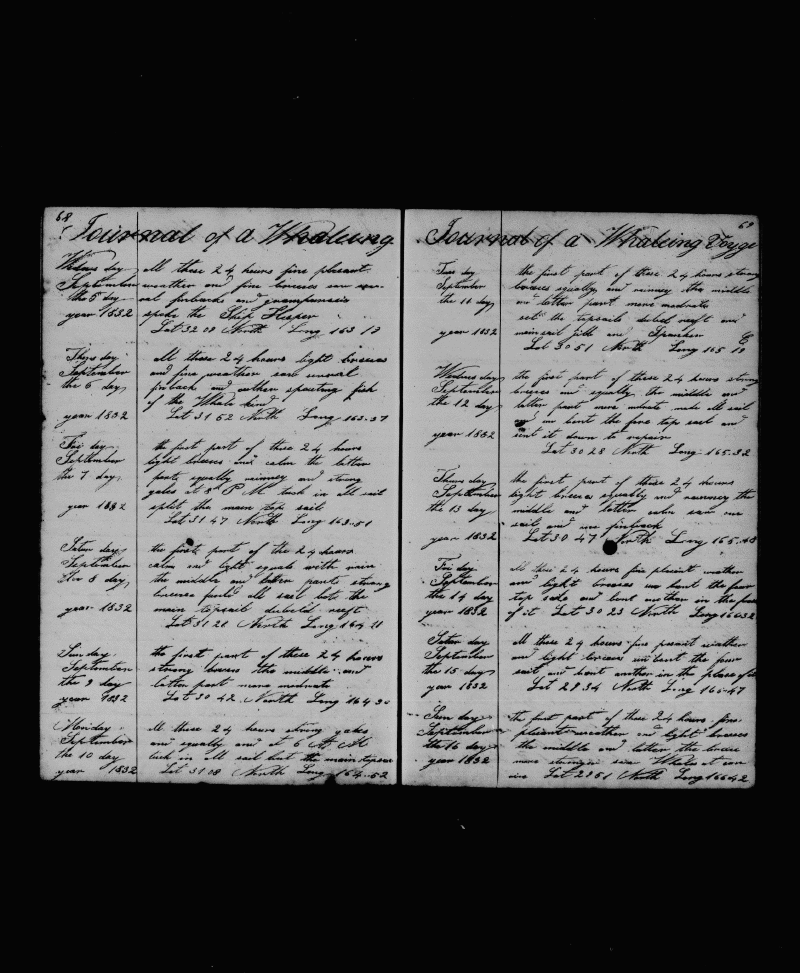 68
Journal of a Whaleing
Wedns day All these 24 hours fine pleasent
September weather and fine breezes saw sev-
the 5 day eral finbacks and grampuses
year 1832 spoke the Ship Hesper
Lat 32 08 North Long 163 13
Thurs day All these 24 hours light breezes
September and fine weather saw several
the 6 day finback and other spouting fish
of the Whale kind
year 1832 Lat 31 52 North Long 163-37
Fri day the first part of these 24 hours
September light breezes and calm the latter
the 7 day part equally rainney and strong
gales at 5 P M took in all sail
year 1832 split the main top sail
Lat 31 47 North Long 163-51
Satur day the first part of the 24 hours
September calm and light equals with rain
the 8 day the middle and latter parts strong
breezes furld all sail but the
year 1832 main topsail dubel reeft
Lat 31 21 North Long 164 21
Sun day the first part of these 24 hours
September strong breezes the middle and
the 9 day latter part more moderate
year 1832 Lat 30 42 North Long 164 30
Monday All these 24 hours strong gales
September and equally and at 6 A M
the 10 day took in all sail but the main topsail
year 1832 Lat 31 08 North Long 164-52
69
Journal of a Whaleing Voyge
Tues day the first part of these 24 hours strong
September breezes equally and rainney the middle
the 11 day and latter part more moderate
set the topsails dubel reeft and
year 1832 mainsail jibb and Spanker
Lat 30 51 North Long 165 10 E
Wednes day the first part of these 24 hours strong
September breezes and equally the middle and
the 12 day latter part more moderate made all sail
and un bent the fore top sail and
year 1832 sent it down to repair
Lat 30 28 North Long 165-32
Thurs day the first part of these 24 hours
September light breezes equally and rainney the
the 13 day middle and latter calm saw one
sail and one finback
year 1832 Lat 30 47 North Long 165-48
Fri day All these 24 hours fine pleasent weather
September and light breezes un bent the four
the 14 day top sale and bent another in the place
year 1832 of it Lat 30 23 North Long 166 32
Satur day All these 24 hours fine plesent weather
September and light breezes unbent the four
the 15 day sail and bent another in the place of it
year 1832 Lat 29 34 North Long 166-47
Sun day the first part of these 24 hours fine
September pleasent weather and light breezes
the 16 day the middle and latter the breeze
year 1832 more stronger saw Whales at sun
rise Lat 28 51 North Long 166 42